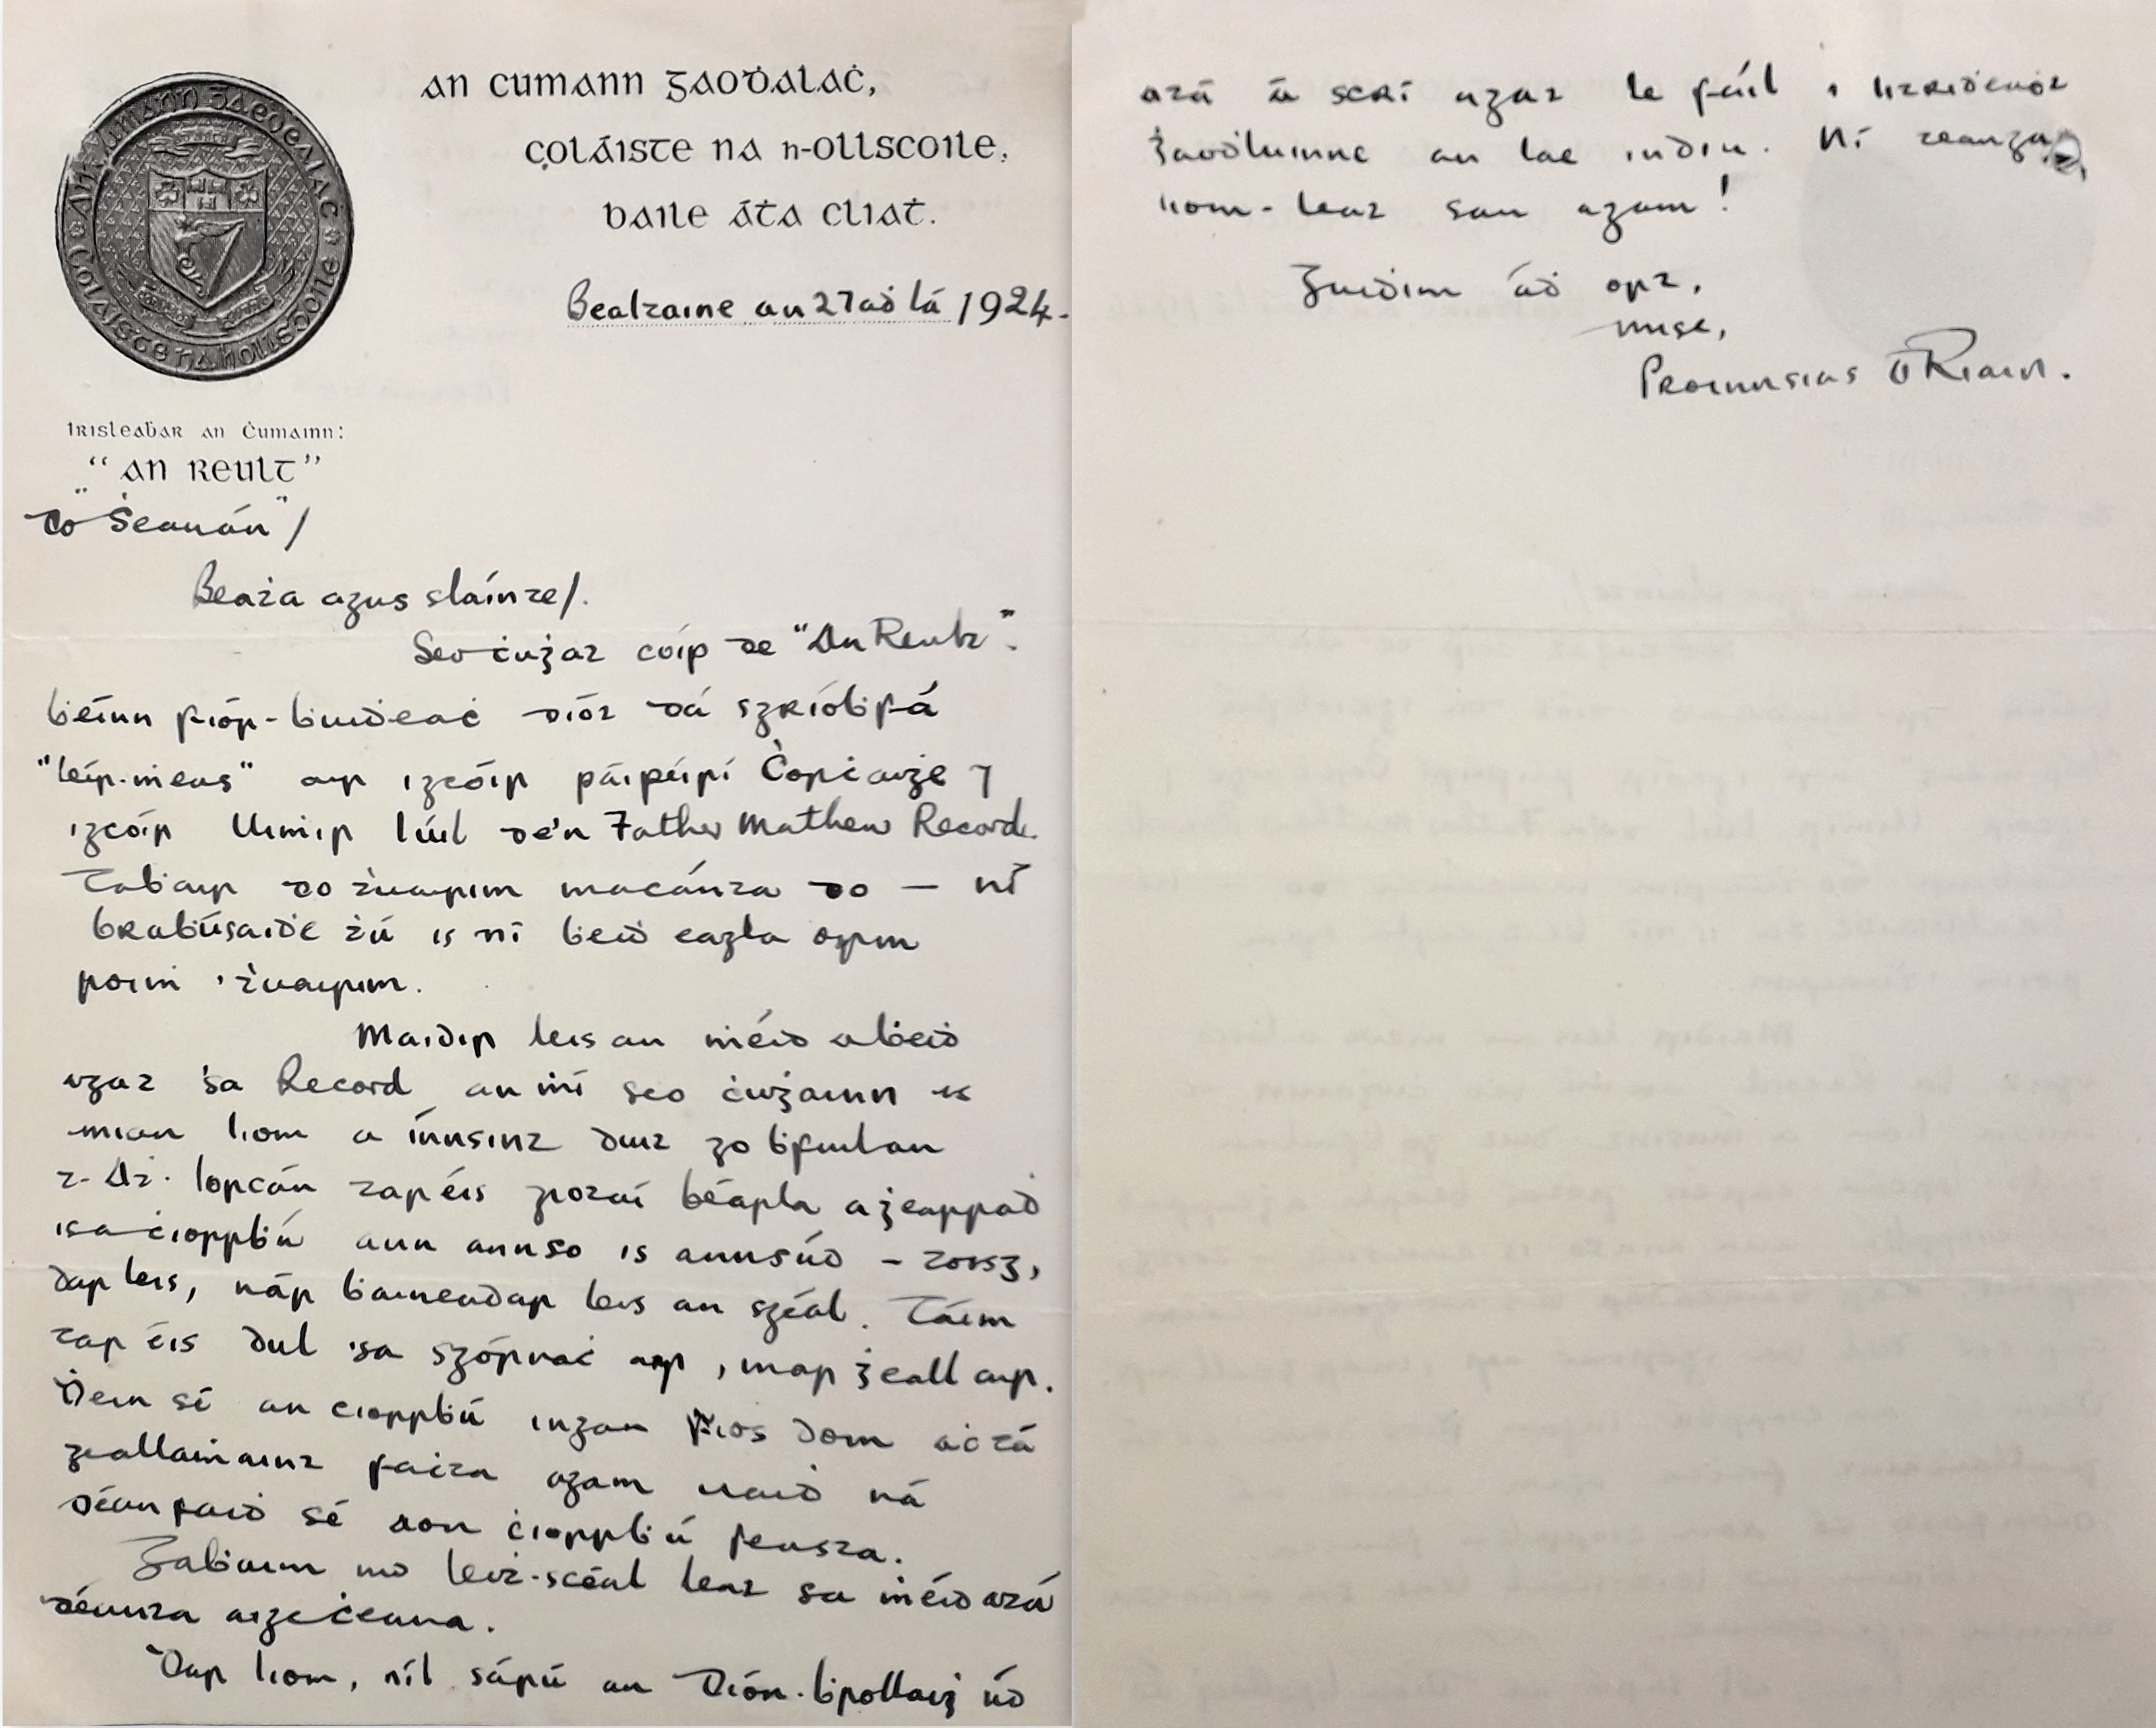 An Cumann Gaoḋalaċ,
Coláiste na n-Ollscoile,
Baile Áṫa Cliaṫ.
An Cumann Gaeḋealaċ
Coláiste na hOllscoile
Bealtaine an 27aḋ lá 1924.
Irisleaḃar an Ċumainn:
"An Reult"
Do "Ṡeanán"/
Beaṫa agus sláinte/.
Seo ċuġat cóip de "An Reult".
Ḃéinn fíor-ḃuiḋeaċ ḋíot dá sgríoḃfá
"léir-ṁeas" air i gcóir páipéirí Ċorcaiġe ⁊
i gcóir Uiṁir Iúil de'n Father Mathew Record.
Taḃair do ṫuairim macánta do — ní
brabúsaiḋe ṫú is ní ḃeiḋ eagla orm
roiṁ ṫuairim.
Maidir leis an ṁéid a ḃeiḋ
agat 'sa Record an ṁí seo ċuġainn is
mian liom a innsint duit go ḃfuil an
t-At. Lorcán tar éis giotaí béarla a ġearraḋ
is a ċiorrḃú ann annso is annsúd - toisg,
dar leis, nár ḃaineadar leis an sgéal. Táim
tar éis dul 'sa sgórnaċ air, mar ġeall air.
Ḋein sé an ciorrḃú i ngan ḟios dom aċ tá
geallaṁaint faċta agam uaiḋ ná
déanfaiḋ sé aon ċiorrḃú feasta.
Gaḃaim mo leiṫ-scéal leat sa ṁéid atá
déanta aige ċeana.
Dar liom, níl sárú an Díon-ḃrollaiġ úd
atá á scrí agat le fáil i litriḋeaċt
Ġaoḋluinne an lae indiu. Ní teanga
liom-leat san agam!
Guiḋim áḋ ort,
mise,
Proinnsias Ó Riain.